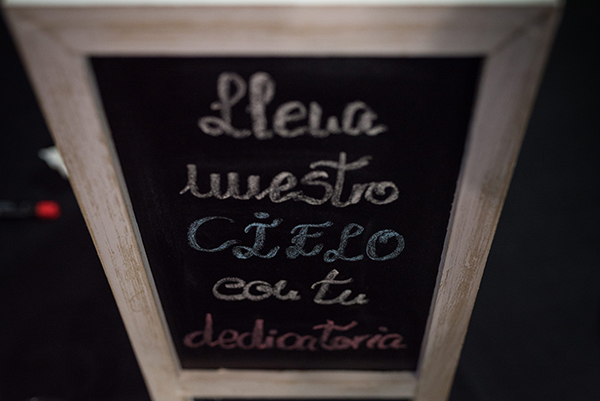 Lleva
nuestro
CIELO
con tu
dedicatoria